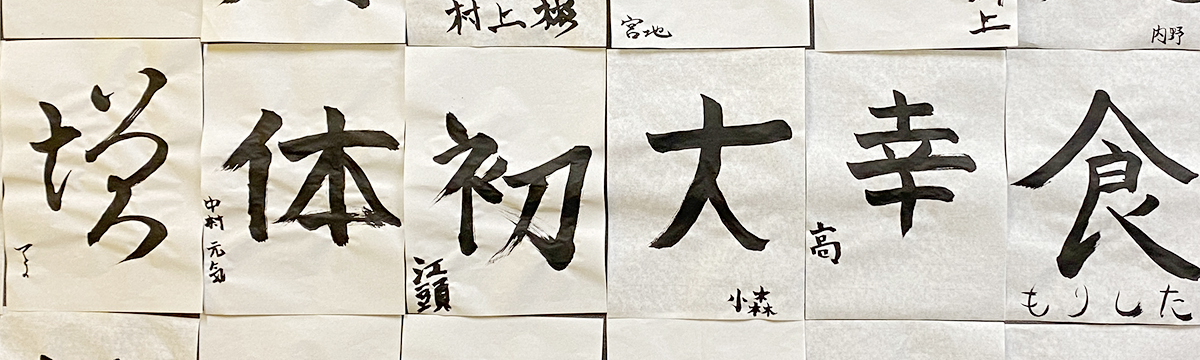 村上
宮地
上
内野
増
体
中村元気
初
江頭
大
小森
幸
高
食
もりした